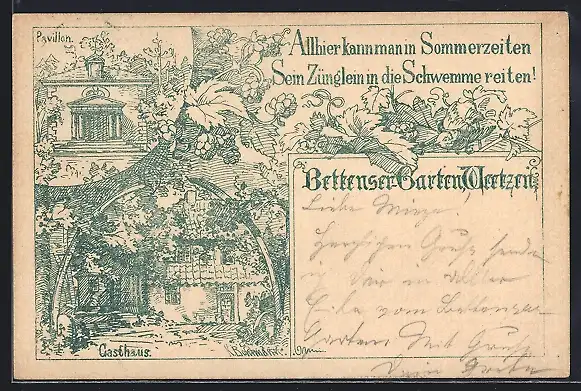 Pavillon.
Allhier kann man in Sommerzeiten
Sein Zünglein in die Schwemme reiten!
Bettenser Garten, Weetzen,
Liebe Minze.
Herzlichen Gruß sendet
Dir in aller
Eile vom Bettenser
Garten Mit Gruß
Dein
Gasthaus.